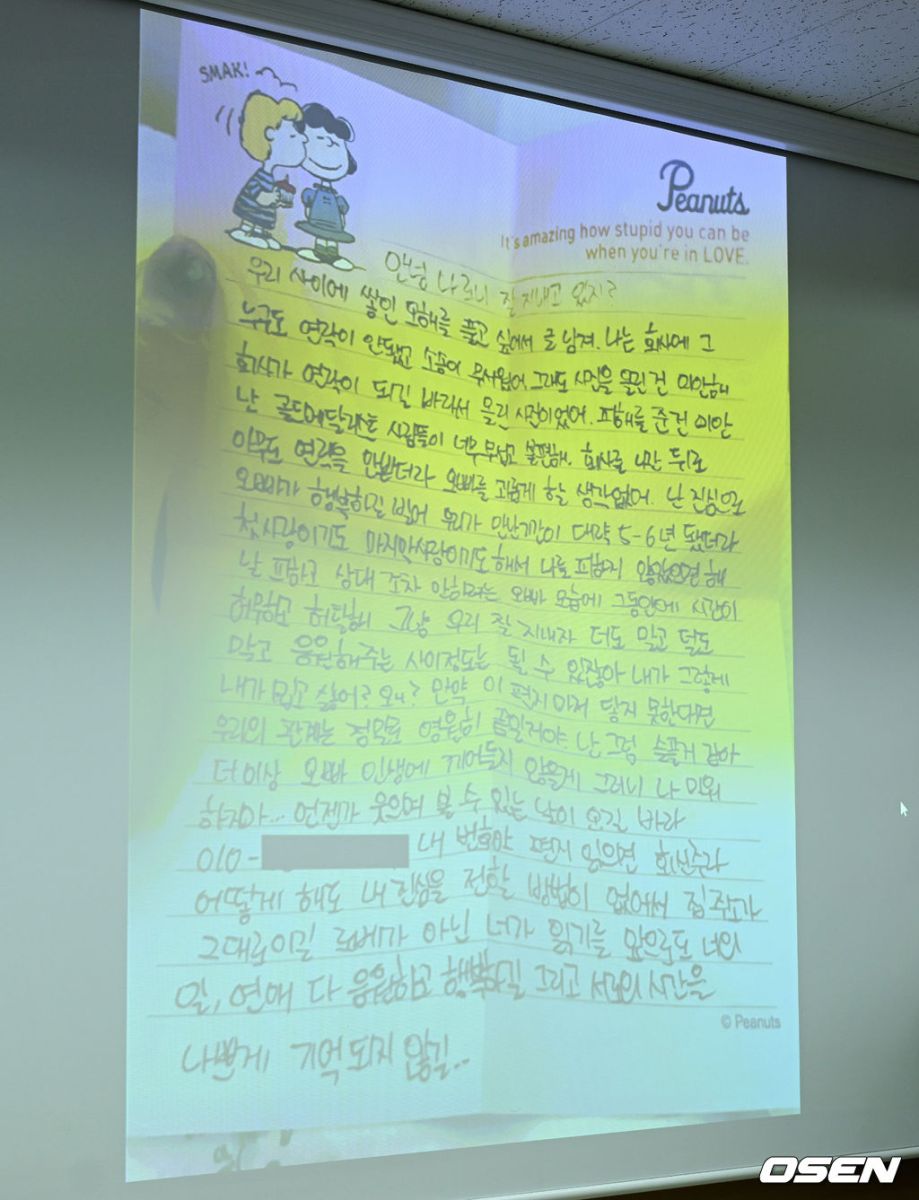 SMAK!
Peanuts
It's amazing how stupid you can be
when you're in LOVE.
안녕 나 론이 잘 지내고 있지?
우리 사이에 쌓인 오해를 풀고 싶어서 글 남겨. 나는 회사에 그
누구도 연락이 안됐고 소송이 무서웠어 그래도 사진을 올린건 미안해
회사가 연락이 되길 바라서 올린 사진이었어. 피해를 준건 미안
난 골드메달리스트 사람들이 너무 무섭고 불편해. 회사를 나간 뒤로
아무도 연락을 안받더라 오빠를 괴롭게 할 생각없어. 난 진심으로
오빠가 행복하길 빌어 우리가 만난기간이 대략 5-6년 됐더라
첫사랑이기도 마지막사랑이기도 해서 나를 피하지 않았으면 해
날 피하고 상대 조차 안하려는 오빠 모습에 그동안에 시간이
허무하고 허탈해 그냥 우리 잘 지내자 더도 말고 덜도
말고 응원해주는 사이정도는 될 수 있잖아 내가 그렇게
내가 밉고 싫어? 왜? 만약 이 편지마저 닿지 못한다면
우리의 관계는 정말로 영원히 끝일거야. 난 그럼 슬플거 같아
더이상 오빠 인생에 끼어들지 않을게 그러니 나 미워
하지마... 언젠가 웃으며 볼 수 있는 날이 오길 바라
010- 내 번호야 편지 읽으면 회신주라
어떻게 해도 내 진심을 전할 방법이 없어서 집 주소가
그대로이길 로베가 아닌 너가 읽기를 앞으로도 너의
일, 연애 다 응원하고 행복하길 그리고 서로의 시간을
나쁘게 기억되지 않길..
© Peanuts
OSEN